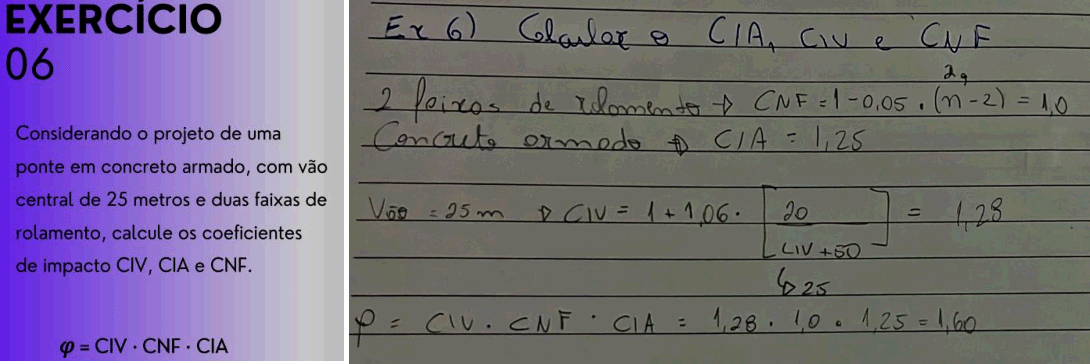 EXERCÍCIO
06
Considerando o projeto de uma
ponte em concreto armado, com vão
central de 25 metros e duas faixas de
rolamento, calcule os coeficientes
de impacto CIV, CIA e CNF.
φ = CIV · CNF · CIA
Ex 6) Calcular o CIA, CIV e CNF
2 faixas de rolamento → CNF = 1 - 0,05 . (n - 2) = 1,0
Concreto armado → CIA = 1,25
Vão = 25 m → CIV = 1 + 1,06 . [20 / LIV + 50] = 1,28
↳ 25
φ = CIV . CNF . CIA = 1,28 . 1,0 . 1,25 = 1,60